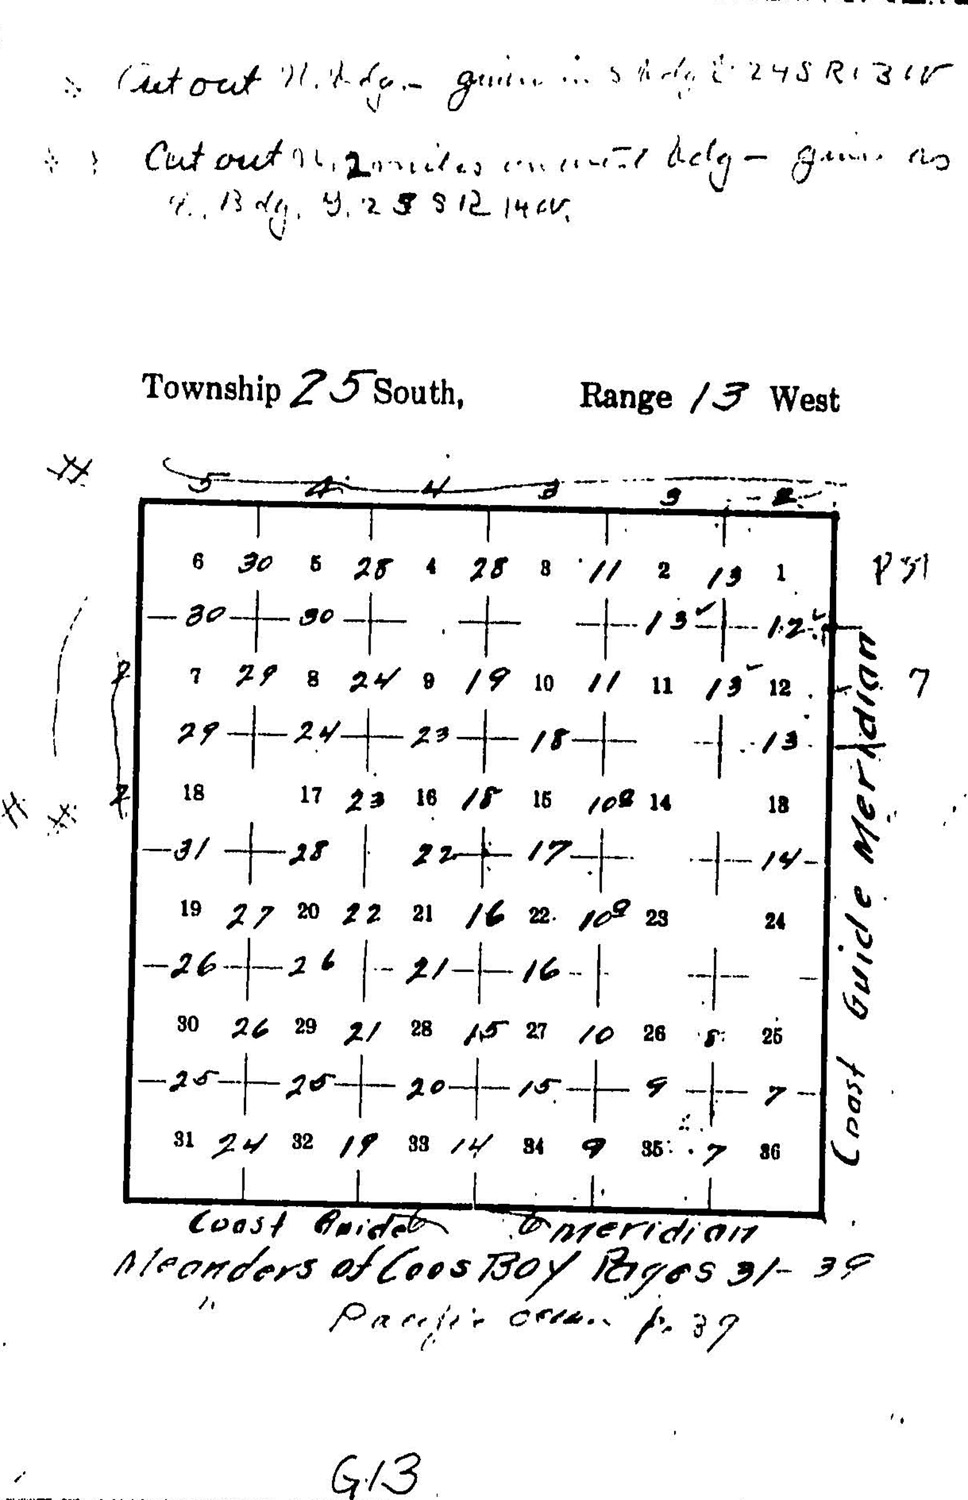 Cut out N. Bdg. - given in S Bdg T 24 S R 13 W
Cut out N. 2 miles on west bdg - given as
Bdg. T. 25 S R 14 W.
Township 25 South, Range 13 West
5 4 4 3 3 2
6 30 5 28 4 28 3 11 2 13 1 P 31
30 30 13 12
7 29 8 24 9 19 10 11 11 13 12 7
29 24 23 18 13
18 17 23 16 18 15 10a 14 13
31 28 22 17 14
19 27 20 22 21 16 22 10a 23 24
26 26 21 16
30 26 29 21 28 15 27 10 26 8 25
25 25 20 15 9 7
31 24 32 19 33 14 34 9 35 7 36
2
2
Coast Guide Meridian
Coast Guide 6 6 Meridian
Meanders of Coos Bay Pages 31-39
" Pacific Ocean p. 39
G13